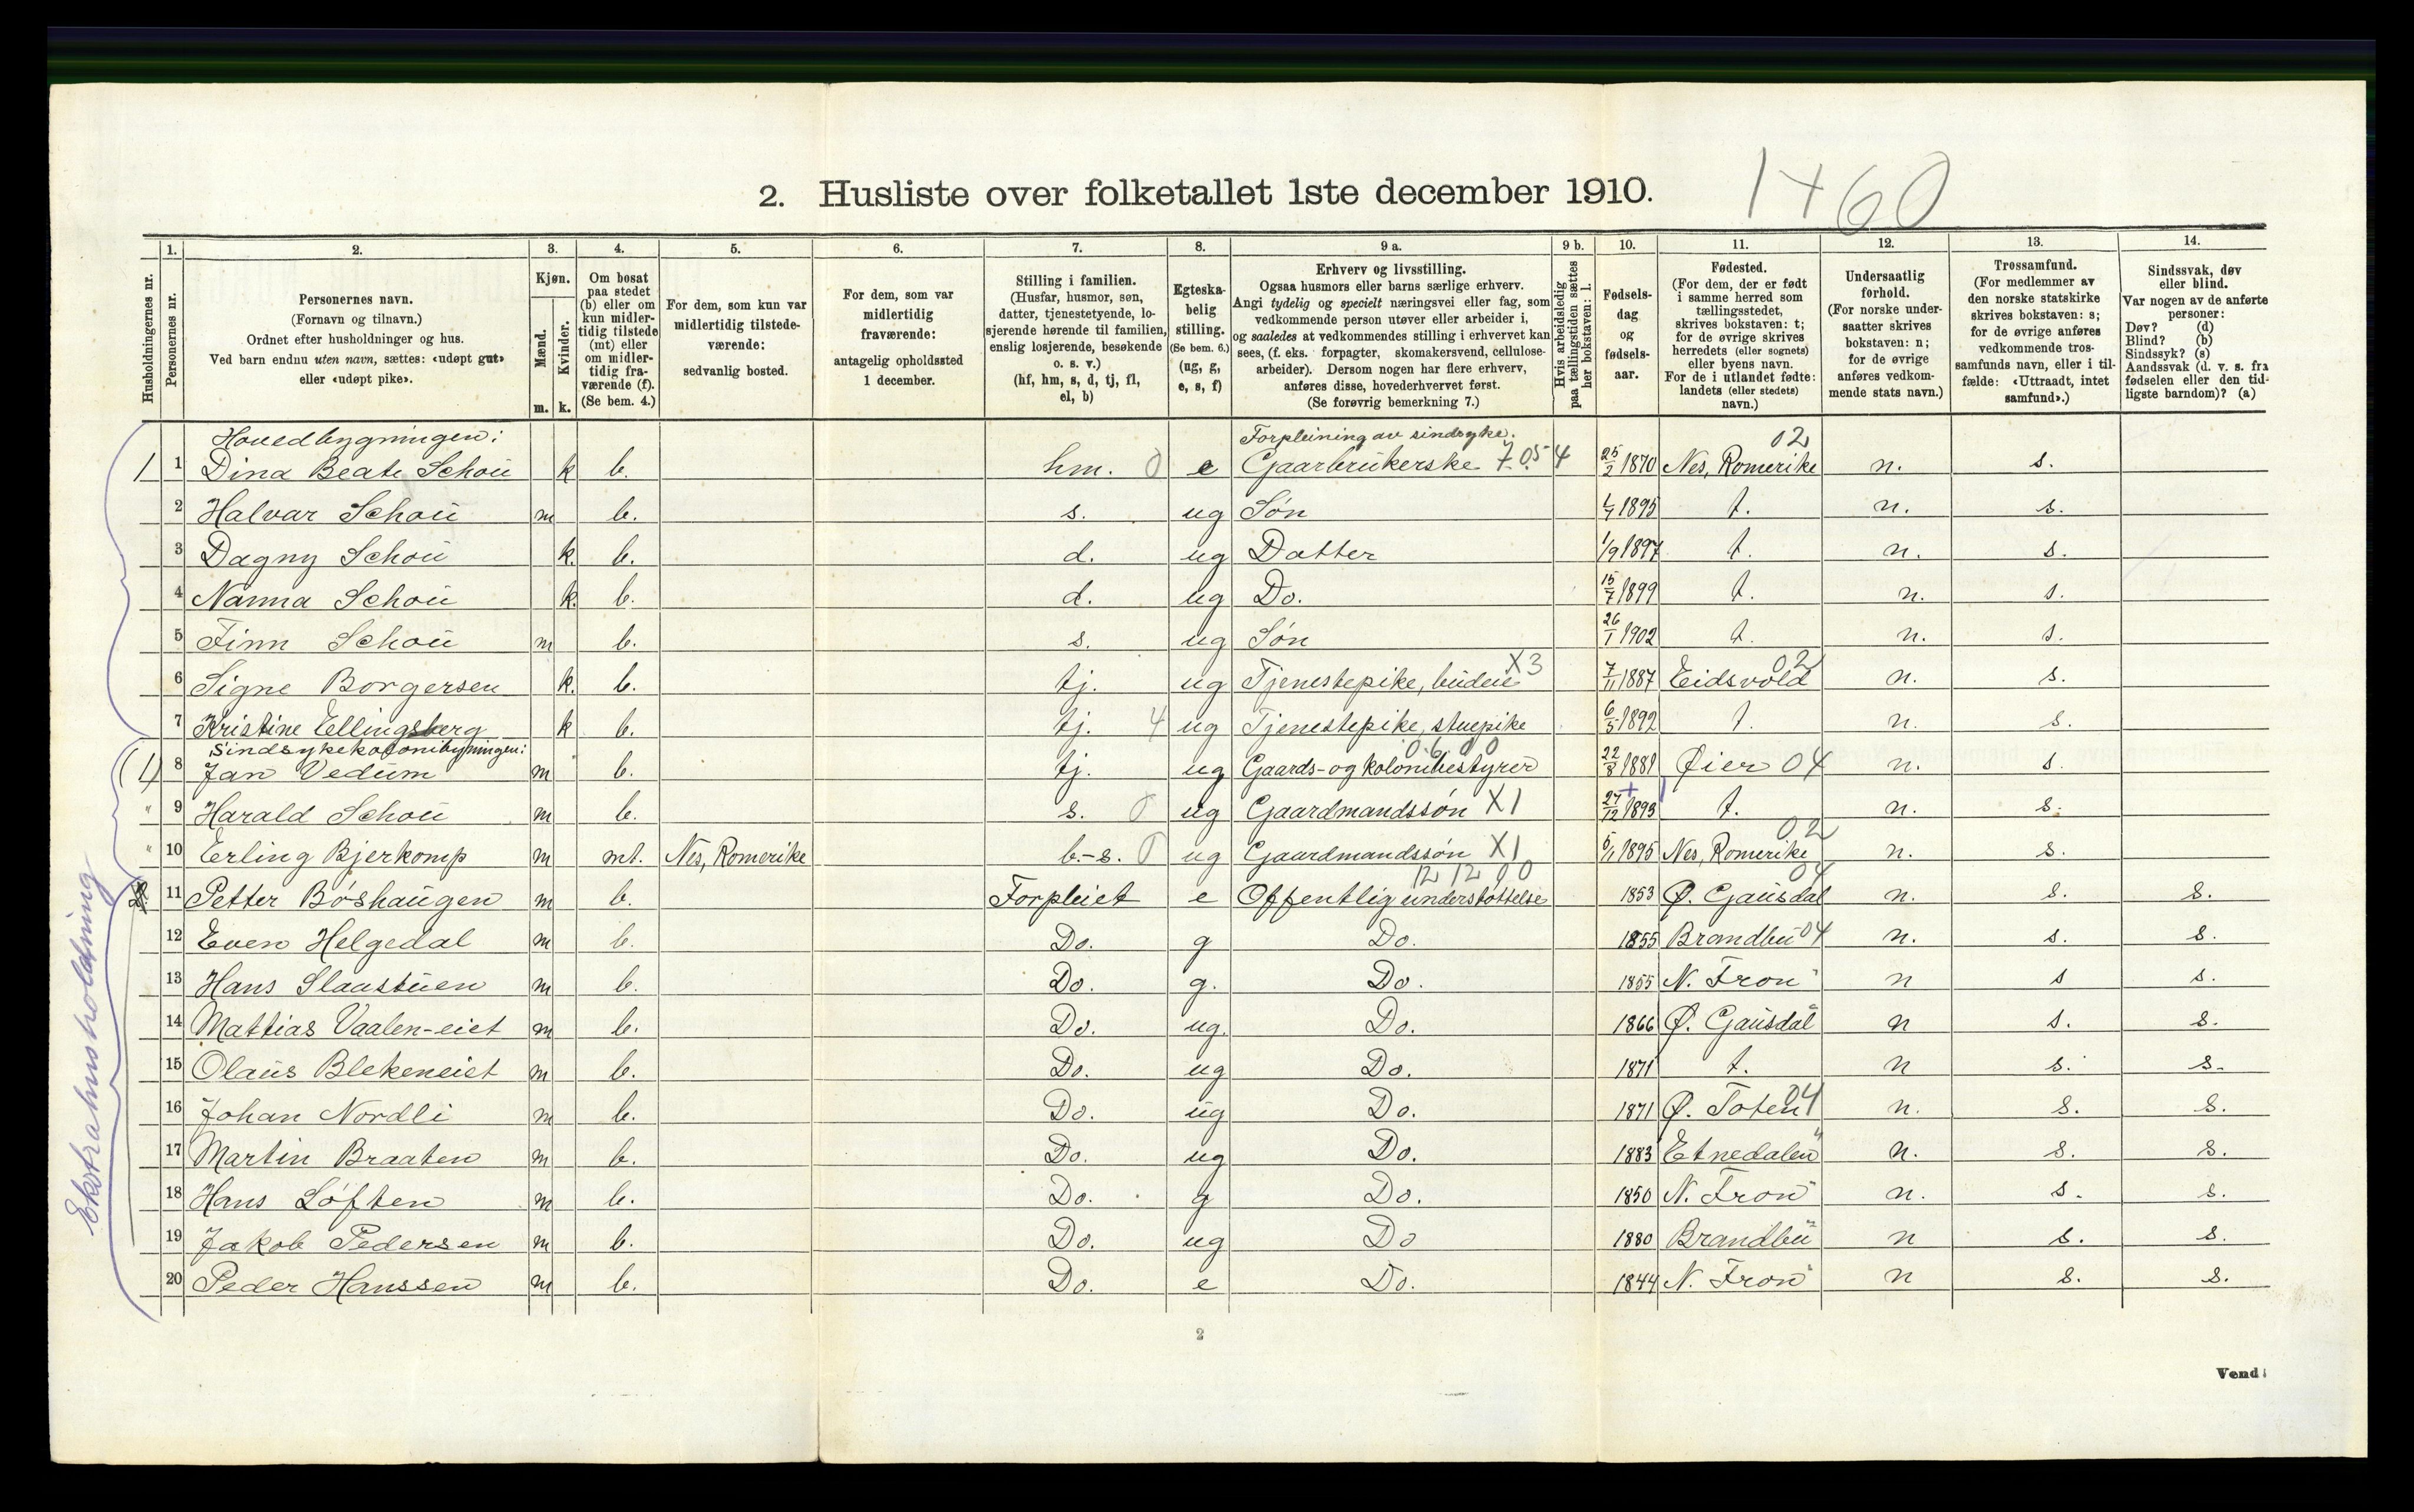 2. Husliste over folketallet 1ste december 1910.
1+60
Husholdningernes nr.
1. Personernes nr.
2. Personernes navn. (Fornavn og tilnavn.) Ordnet efter husholdninger og hus. Ved barn endnu uten navn, sættes: «udøpt gut» eller «udøpt pike».
3. Kjøn. Mænd. m. Kvinder. k.
4. Om bosat paa stedet (b) eller om kun midlertidig tilstede (mt) eller om midlertidig fraværende (f). (Se bem. 4.)
5. For dem, som kun var midlertidig tilstedeværende: sedvanlig bosted.
6. For dem, som var midlertidig fraværende: antagelig opholdssted 1 december.
7. Stilling i familien. (Husfar, husmor, søn, datter, tjenestetyende, losjerende hørende til familien, enslig losjerende, besøkende o. s. v.) (hf, hm, s, d, tj, fl, el, b)
8. Egteskabelig stilling. (Se bem. 6.) (ug, g, e, s, f)
9 a. Erhverv og livsstilling. Ogsaa husmors eller barns særlige erhverv. Angi tydelig og specielt næringsvei eller fag, som vedkommende person utøver eller arbeider i, og saaledes at vedkommendes stilling i erhvervet kan sees, (f. eks. forpagter, skomakersvend, cellulosearbeider). Dersom nogen har flere erhverv, anføres disse, hovederhvervet først. (Se forøvrig bemerkning 7.)
9 b. Hvis arbeidsledig paa tællingstiden sættes her bokstaven: l.
10. Fødselsdag og fødselsaar.
11. Fødested. (For dem, der er født i samme herred som tællingsstedet, skrives bokstaven: t; for de øvrige skrives herredets (eller sognets) eller byens navn. For de i utlandet fødte: landets (eller stedets) navn.)
12. Undersaatlig forhold. (For norske undersaatter skrives bokstaven: n; for de øvrige anføres vedkommende stats navn.)
13. Trossamfund. (For medlemmer av den norske statskirke skrives bokstaven: s; for de øvrige anføres vedkommende trossamfunds navn, eller i tilfælde: «Uttraadt, intet samfund».)
14. Sindssvak, døv eller blind. Var nogen av de anførte personer: Døv? (d) Blind? (b) Sindssyk? (s) Aandssvak (d. v. s. fra fødselen eller den tidligste barndom)? (a)
Hovedbygningen: Forpleining av sindsyke. 02
1 1 Dina Beate Schou k b. hm. 0 e Gaarbrukerske 7.05 4 25/2 1870 Nes, Romerike n. s.
2 Halvar Schou m b. s. ug Søn 1/7 1895 t. n. s.
3 Dagny Schou k. b. d. ug Datter 1/9 1897 t. n. s.
4 Nanna Schou k. b. d. ug Do. 15/7 1899 t. n. s.
5 Finn Schou m b. s. ug Søn 26/1 1902 t. n. s.
6 Signe Borgersen k. b. tj. ug Tjenestepike, budeie X3 7/11 1887 Eidsvold 02 n. s.
7 Kristine Ellingsberg k b. tj. 4 ug Tjenestepike, stuepike 6/5 1892 t. n. s.
Sindsykekolonibyningen: 0.6.00
(1) 8 Jan Vedum m b. tj. ug Gaards- og kolonibestyrer 22/8 1881 Øier 04 n. s.
" 9 Harald Schou m b. s. 0 ug Gaardmandssøn X1 27/12 1893 t. n. s.
" 10 Erling Bjerkomp m mt. Nes, Romerike b.-s. 0 ug Gaardmandssøn X1 5/11 1895 Nes, Romerike 02 n. s.
12 12 00 04
11 Petter Bøshaugen m b. Forpleiet e Offentlig understøttelse 1853 Ø. Gausdal n. s. s.
12 Even Helgedal m b. Do. g Do. 1855 Brandbu 04 n. s. s.
13 Hans Slaastuen m b. Do. g. Do. 1855 N. Fron " n s s.
14 Mattias Vaalen-eiet m b. Do. ug. Do. 1866 Ø. Gausdal " n s. s.
15 Olaus Blekeneiet m b. Do. ug Do. 1871 t. n s. s.
16 Johan Nordli m b. Do. ug Do. 1871 Ø. Toten 04 n. s. s.
17 Martin Braaten m b. Do. ug Do. 1883 Etnedalen " n. s. s.
18 Hans Løften m b. Do. g Do. 1850 N. Fron " n. s. s.
19 Jakob Pedersen m b. Do. ug Do 1880 Brandbu " n s. s.
20 Peder Hanssen m b. Do. e Do. 1844 N. Fron " n s. s.
Ekstrahusholdning
2
Vend!